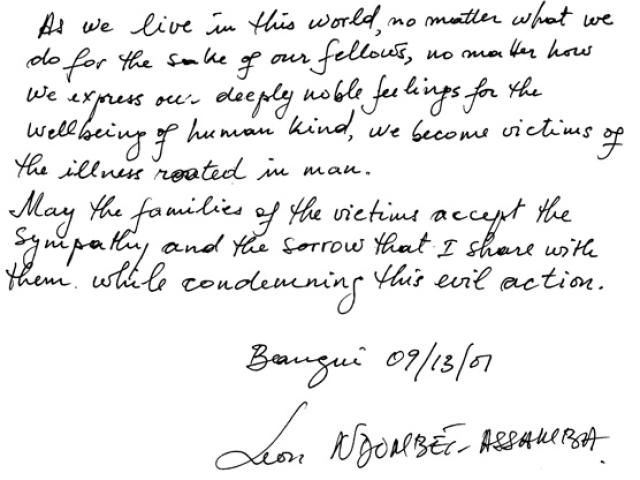 As we live in this world, no matter what we
do for the sake of our fellows, no matter how
we express our deeply noble feelings for the
wellbeing of human kind, we become victims of
the illness rooted in man.
May the families of the victims accept the
sympathy and the sorrow that I share with
them. while condemning this evil action.
Bangui 09/13/01
Leon